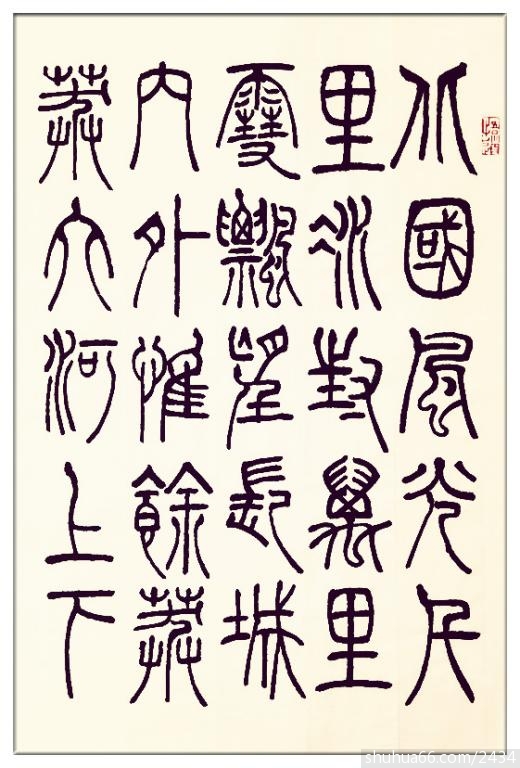 北國風光千
里冰封萬里
雪飄望長城
内外惟餘莽
莽大河上下
shuhua66.com/2434